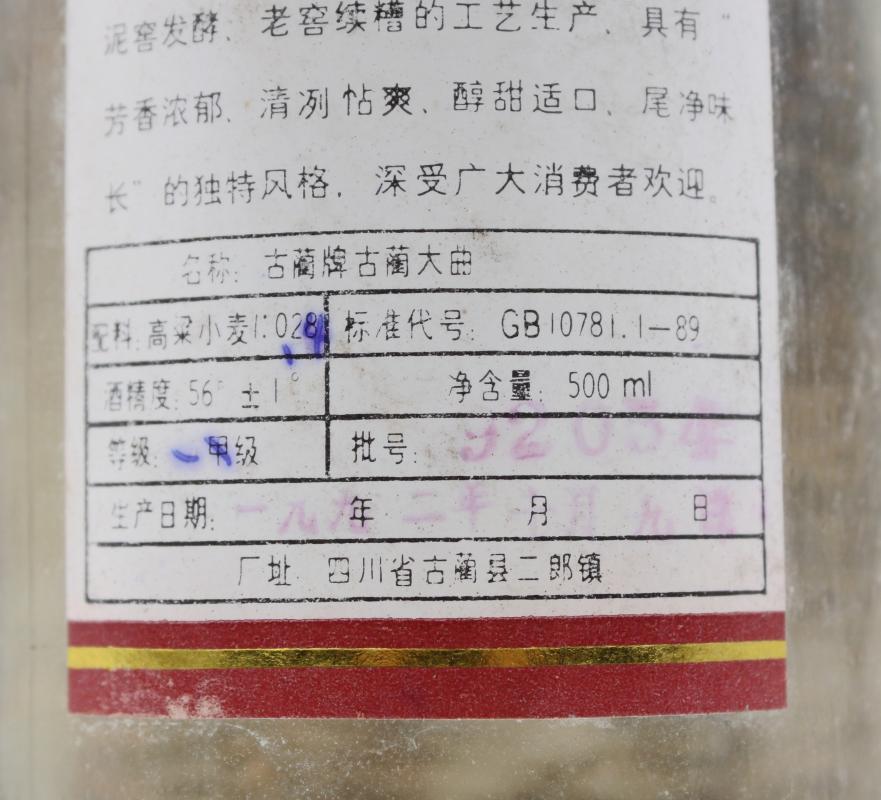 泥窖发酵、老窖续糟的工艺生产、具有“
芳香浓郁、清冽帖爽、醇甜适口、尾净味
长”的独特风格，深受广大消费者欢迎。
名称：古蔺牌古蔺大曲
配料：高粱小麦1:028 标准代号：GB10781.1—89
酒精度：56°±1° 净含量：500ml
等级：甲级 批号：
生产日期：一九九二年 年 月 日
厂址 四川省古蔺县二郎镇